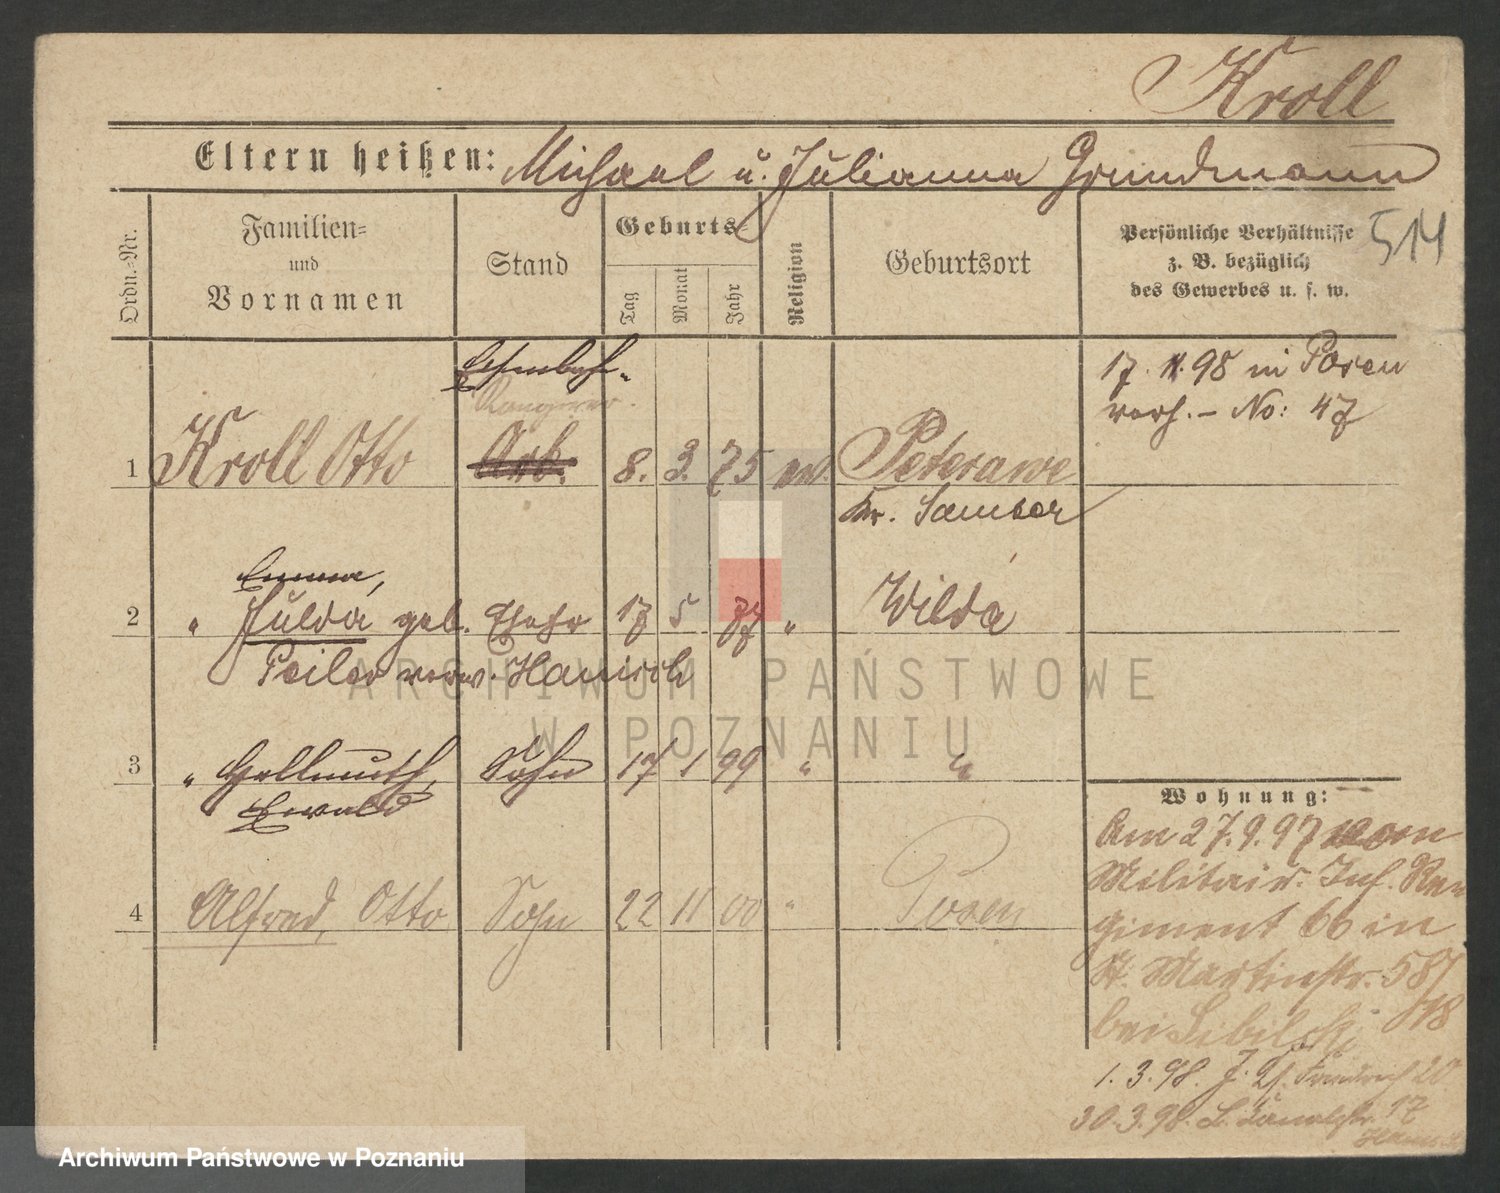 Kroll
Eltern heißen: Michael u. Julianna Grundmann
514
Ordn.-Nr.
Familien-
und
Vornamen
Stand
Geburts-
Tag
Monat
Jahr
Religion
Geburtsort
Persönliche Verhältnisse
z. B. bezüglich
des Gewerbes u. s. w.
17. 1. 98 in Posen
verh. – No: 47
Eisenbah-
Rangierer.
1 Kroll Otto Arb. 8. 3. 75 ev. Peterawe
Kr. Samter
Emma,
2 " Hulda geb. Ehefr 17 5 77 " Wilda
Peiler verw. Hanisch
3 " Hellmuth, Sohn 17 1 99 " "
Ewald
4 Alfred, Otto Sohn 22 11 00 " Posen
Wohnung:
Am 27.9.97 vom
Militair. Inf. Re
giment 66 in
St. Martinstr. 58/
18
bei
1. 3. 98. Friedrich 20
30. 3. 98. Kanalstr. 17
ARCHIWUM PAŃSTWOWE
W POZNANIU
Archiwum Państwowe w Poznaniu